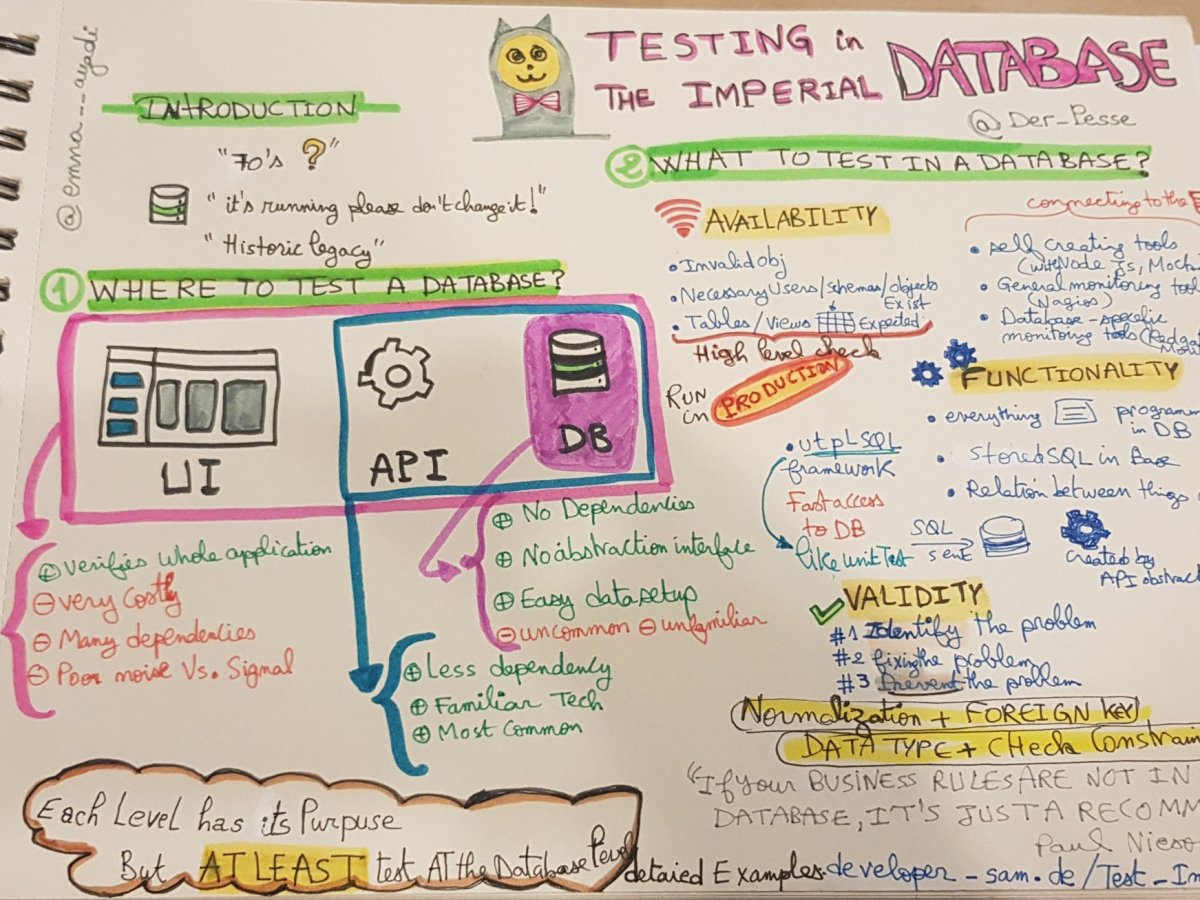 @emma__ayadi
TESTING in
THE IMPERIAL DATABASE
@Der-Pesse
INTRODUCTION
"70's ?"
"it's running please don't change it!"
"Historic legacy"
① WHERE TO TEST A DATABASE?
UI
API
DB
⊕ verifies whole application
⊖ very Costly
⊖ Many dependencies
⊖ Poor noise Vs. Signal
⊕ No Dependencies
⊕ No abstraction interface
⊕ Easy data setup
⊖ uncommon ⊖ unfamiliar
⊕ Less dependency
⊕ Familiar Tech
⊕ Most Common
Each Level has its Purpuse
But AT LEAST test AT the Database level
② WHAT TO TEST IN A DATABASE?
AVAILABILITY
• Invalid obj
• Necessary Users/schemas/objects
Exist
• Tables/Views Expected
High level check
RUN
in PRODUCTION
connecting to the
• self creating tools
(with Node js, Mocha
• General monitoring tool
(Nagios)
• Database-specific
monitoring tools
FUNCTIONALITY
• everything programm
in DB
• Stored SQL in Base
• Relation between things
• utPLSQL
framework
Fast access
to DB
like unit Test
SQL
sent
created by
API abstract
VALIDITY
#1 Identify the problem
#2 fixing the problem
#3 Prevent the problem
Normalization + FOREIGN KEY
DATA TYPE + CHeck Constrain
"If your BUSINESS RULES ARE NOT IN
DATABASE, IT'S JUST A RECOMM
Paul Nieso
detaied Examples.developer-sam.de/Test_Im